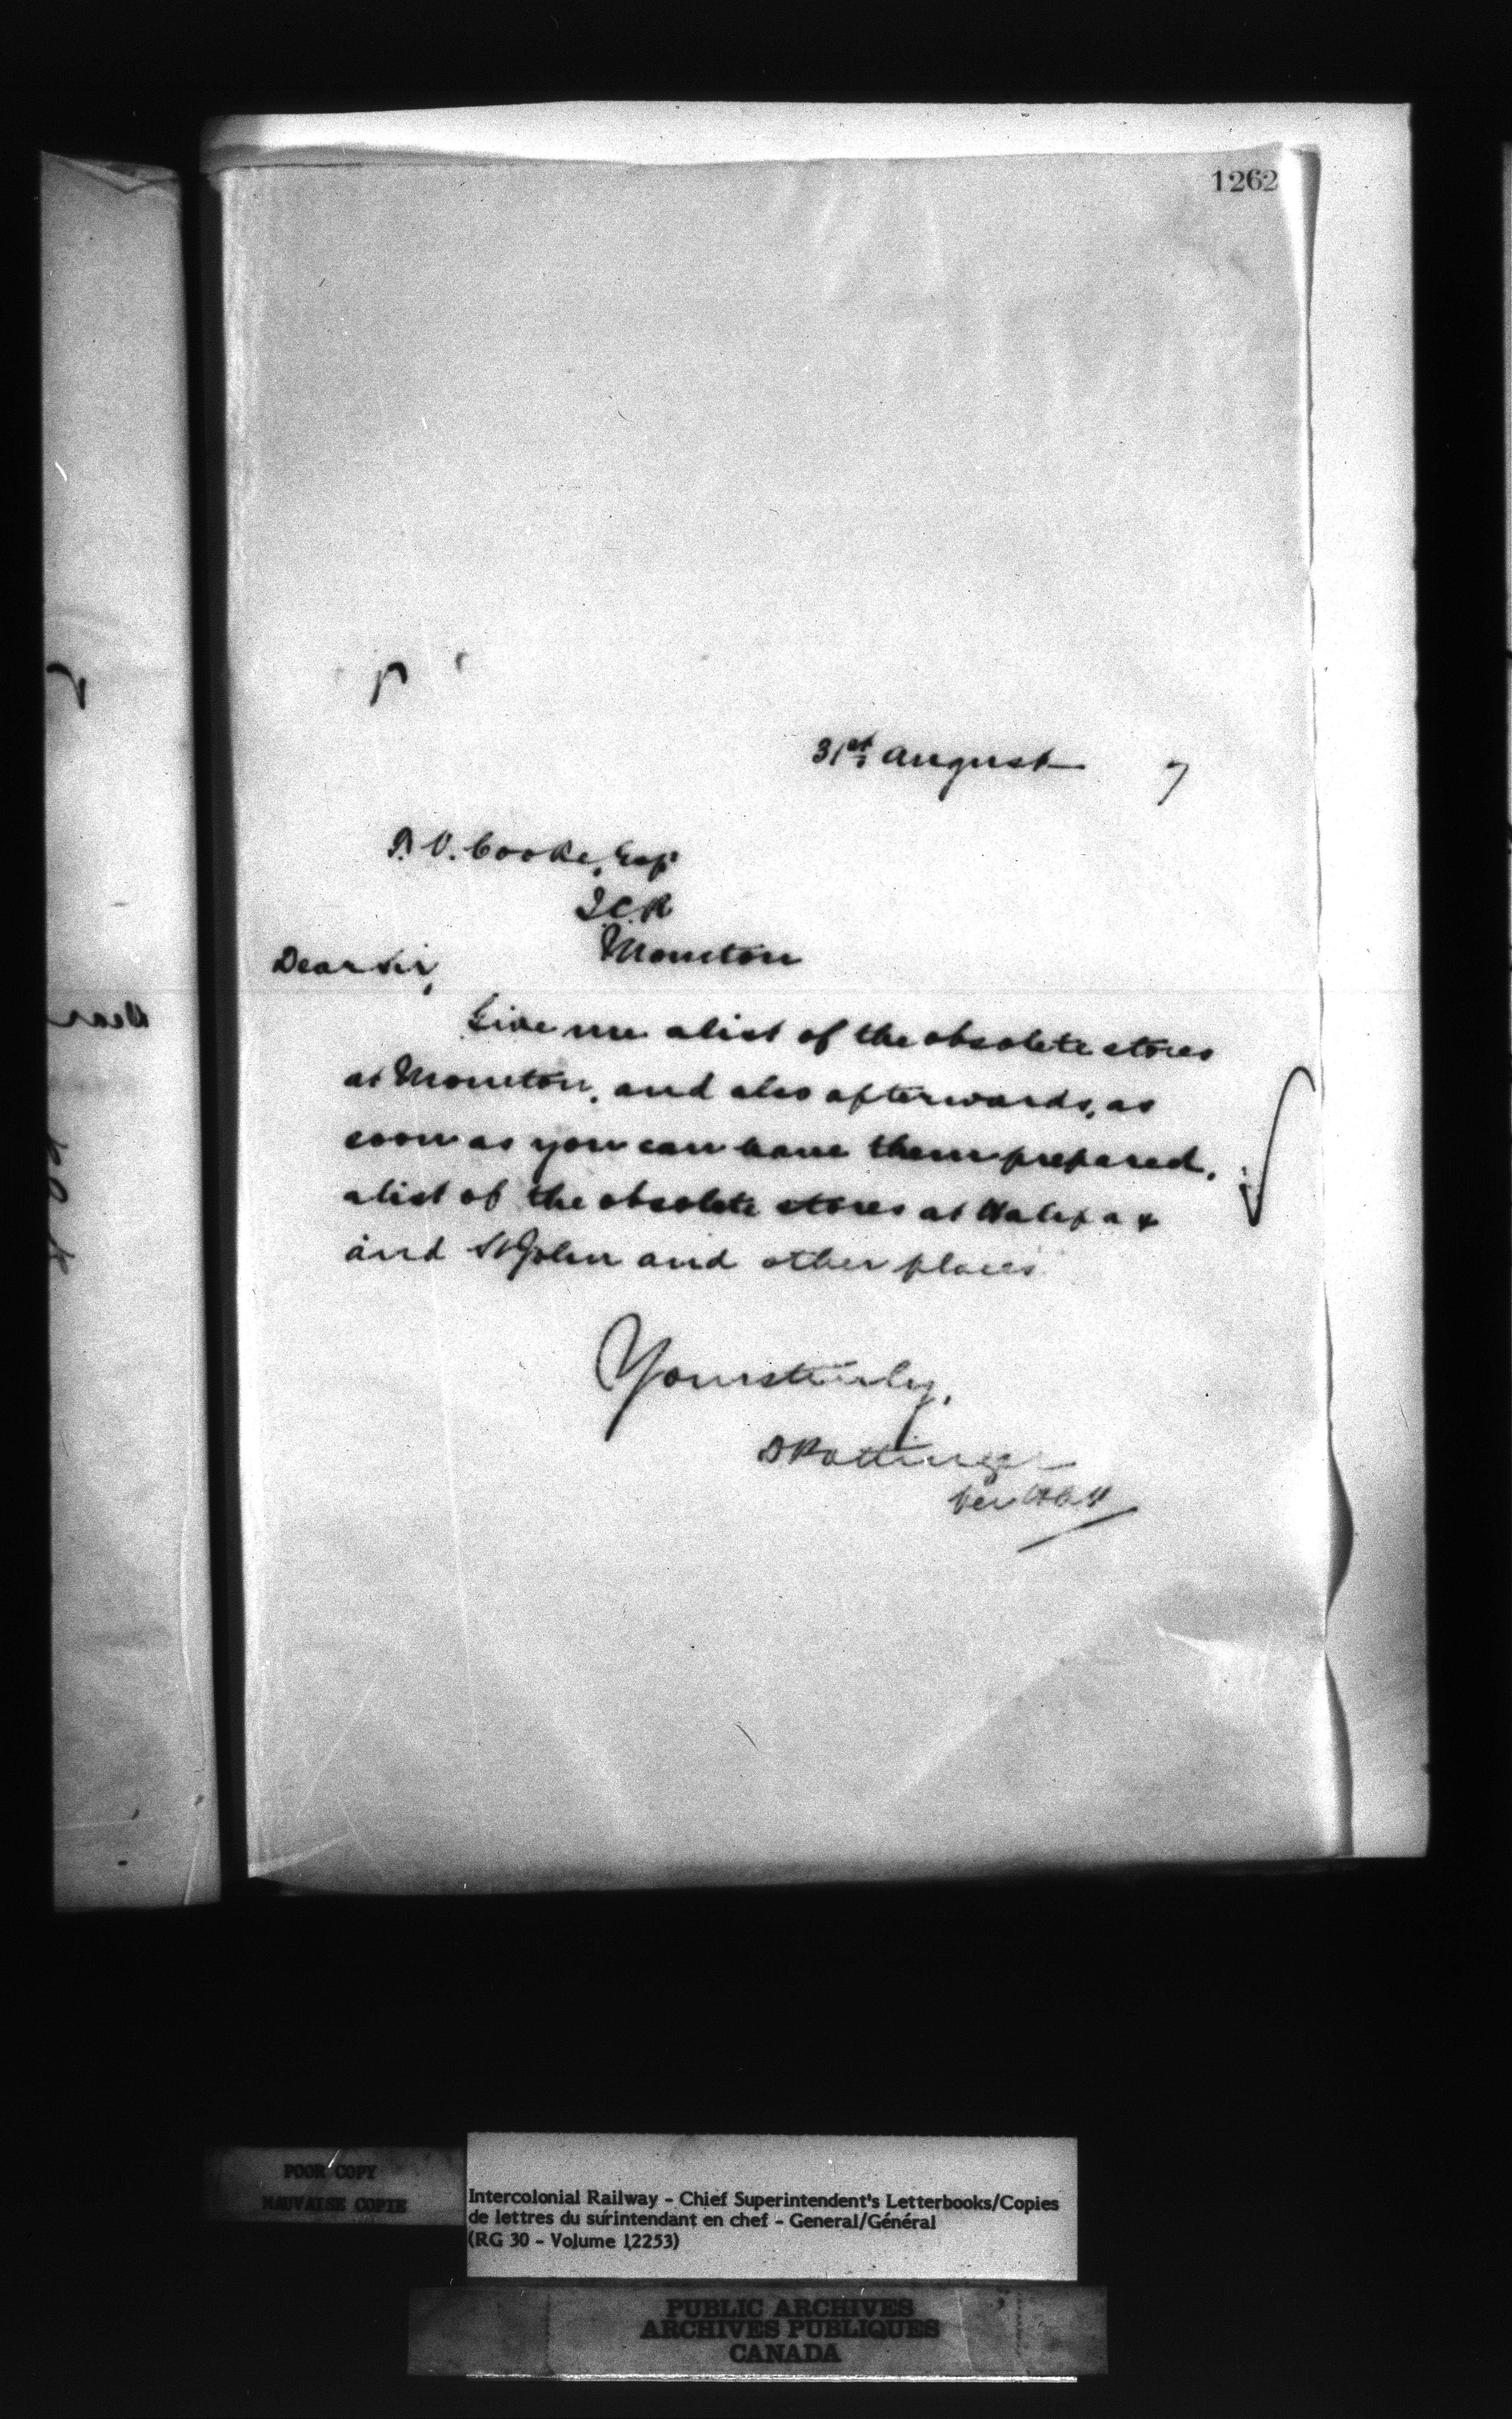 1262
31st August 7
P. V. Cooke, Esq
I.C.R
Moncton
Dear Sir,
Give me a list of the obsolete stores
at Moncton, and also afterwards, as
soon as you can have them prepared,
a list of the obsolete stores at Halifax
and St John and other places
Yours truly,
D Pottinger
per
Dear
POOR COPY
MAUVAISE COPIE
Intercolonial Railway - Chief Superintendent's Letterbooks/Copies
de lettres du surintendant en chef - General/Général
(RG 30 - Volume 12253)
PUBLIC ARCHIVES
ARCHIVES PUBLIQUES
CANADA